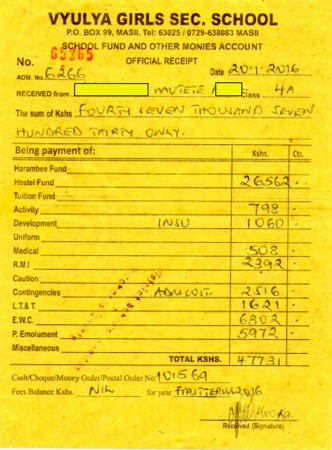 VYULYA GIRLS SEC. SCHOOL
P.O. BOX 99, MASII. Tel: 63025 / 0729-638083 MASII
SCHOOL FUND AND OTHER MONIES ACCOUNT
No. 65365 OFFICIAL RECEIPT
ADM. No. 6266 Date 20-1-2016
RECEIVED from MUTETE Class 4A
The sum of Kshs FOURTY SEVEN THOUSAND SEVEN
HUNDRED THIRTY ONLY.
Being payment of: Kshs. Cts.
Harambee Fund
Hostel Fund 26562
Tuition Fund
Activity 798
Development INSU 1060
Uniform
Medical 508
R.M.I 2392
Caution
Contingencies 2516
L.T.& T. 1621
E.W.C. 6302
P. Emolument 5972
Miscellaneous
TOTAL KSHS. 47731
Cash/Cheque/Money Order/Postal Order No. 101569
Fees Balance Kshs. NIL for year 2016
Received (Signature)